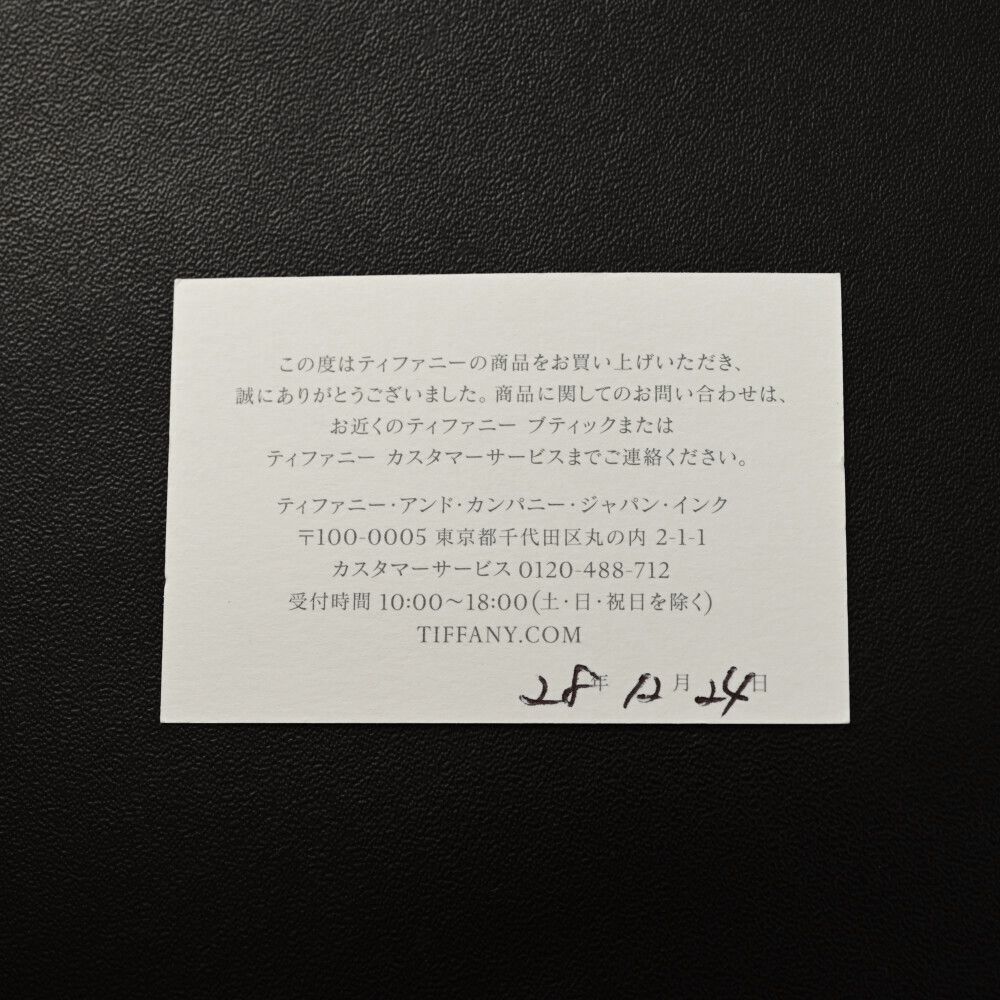 この度はティファニーの商品をお買い上げいただき、
誠にありがとうございました。商品に関してのお問い合わせは、
お近くのティファニー ブティックまたは
ティファニー カスタマーサービスまでご連絡ください。
ティファニー・アンド・カンパニー・ジャパン・インク
〒100-0005 東京都千代田区丸の内 2-1-1
カスタマーサービス 0120-488-712
受付時間 10:00〜18:00(土・日・祝日を除く)
TIFFANY.COM
28年 12月 24日